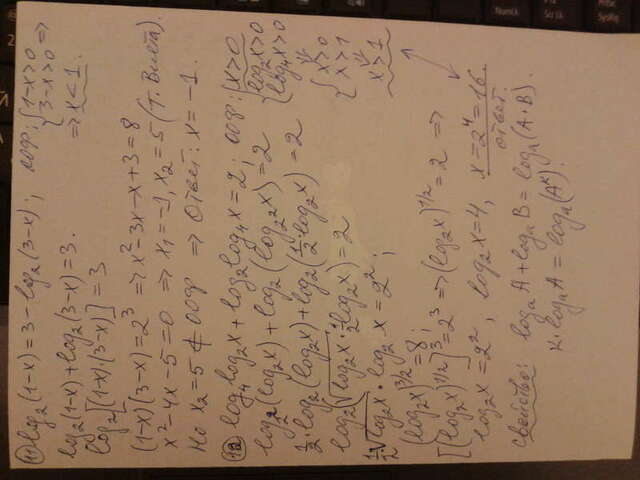 11) log₂(1-x) = 3 - log₂(3-x); ОДЗ: {1-x>0
{3-x>0 ⇒
⇒ x<1.
log₂(1-x) + log₂(3-x) = 3.
log₂[(1-x)·(3-x)] = 3
(1-x)(3-x) = 2³ ⇒ x² - 3x - x + 3 = 8
x² - 4x - 5 = 0 ⇒ x₁ = -1, x₂ = 5 (т. Виета).
Но x₂ = 5 ∉ ОДЗ ⇒ Ответ: x = -1.
12) log₄log₂x + log₂log₄x = 2; ОДЗ: {x>0
{log₂x>0
{log₄x>0
{x>0
{x>1
x>1
log₂²(log₂x) + log₂(log₂²x) = 2
½·log₂(log₂x) + log₂(½·log₂x) = 2
log₂(√log₂x · ½log₂x) = 2
½·√log₂x · log₂x = 2²;
(log₂x)^3/2 = 8;
[(log₂x)^1/2]³ = 2³ ⇒ (log₂x)^1/2 = 2 ⇒
log₂x = 2², log₂x = 4, x = 2⁴ = 16.
ответ.
Свойство: logₐA + logₐB = logₐ(A·B).
k·logₐA = logₐ(Aᵏ).
NumLk
Prt
Scr Lk
Pause
SysRq